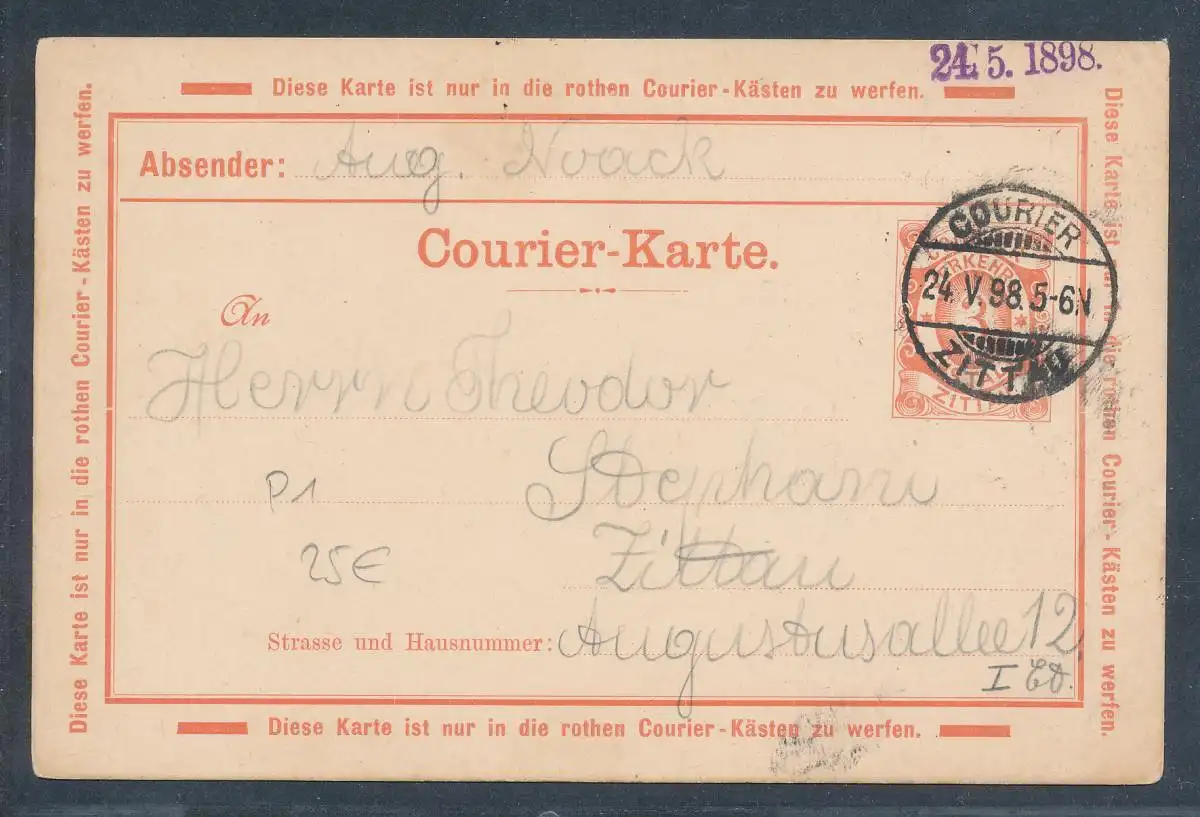 24. 5. 1898.
Diese Karte ist nur in die rothen Courier-Kästen zu werfen.
Absender: Aug. Noack
Courier-Karte.
COURIER
24. V. 98. 5-6N
ZITTAU
VERKEHR
3
ZITTAU
An
Herrn Theodor
Stephani
P1
Zittau
25€
Strasse und Hausnummer: Augustusallee 12.
I Et.
Diese Karte ist nur in die rothen Courier-Kästen zu werfen.
Diese Karte ist nur in die rothen Courier-Kästen zu werfen.
Diese Karte ist nur in die rothen Courier-Kästen zu werfen.